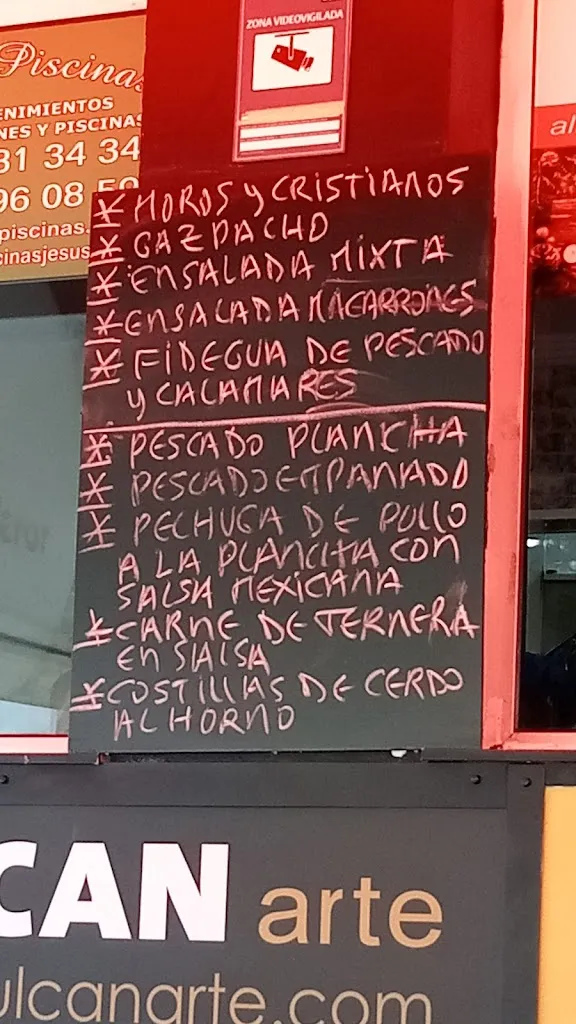 Piscinas
ENIMIENTOS
NES Y PISCINAS
31 34 34
96 08 59
piscinas.
cinasjesus
ZONA VIDEOVIGILADA
al
* MOROS y CRISTIANOS
* GAZPACHO
* ENSALADA MIXTA
* ENSALADA MACARRONES
* FIDEGUA DE PESCADO
y CALAMARES
* PESCADO PLANCHA
* PESCADO EMPANADO
* PECHUGA DE POLLO
A LA PLANCHA CON
SALSA MEXICANA
* CARNE DE TERNERA
EN SALSA
* COSTILLAS DE CERDO
AL HORNO
CAN arte
ulcanarte.com